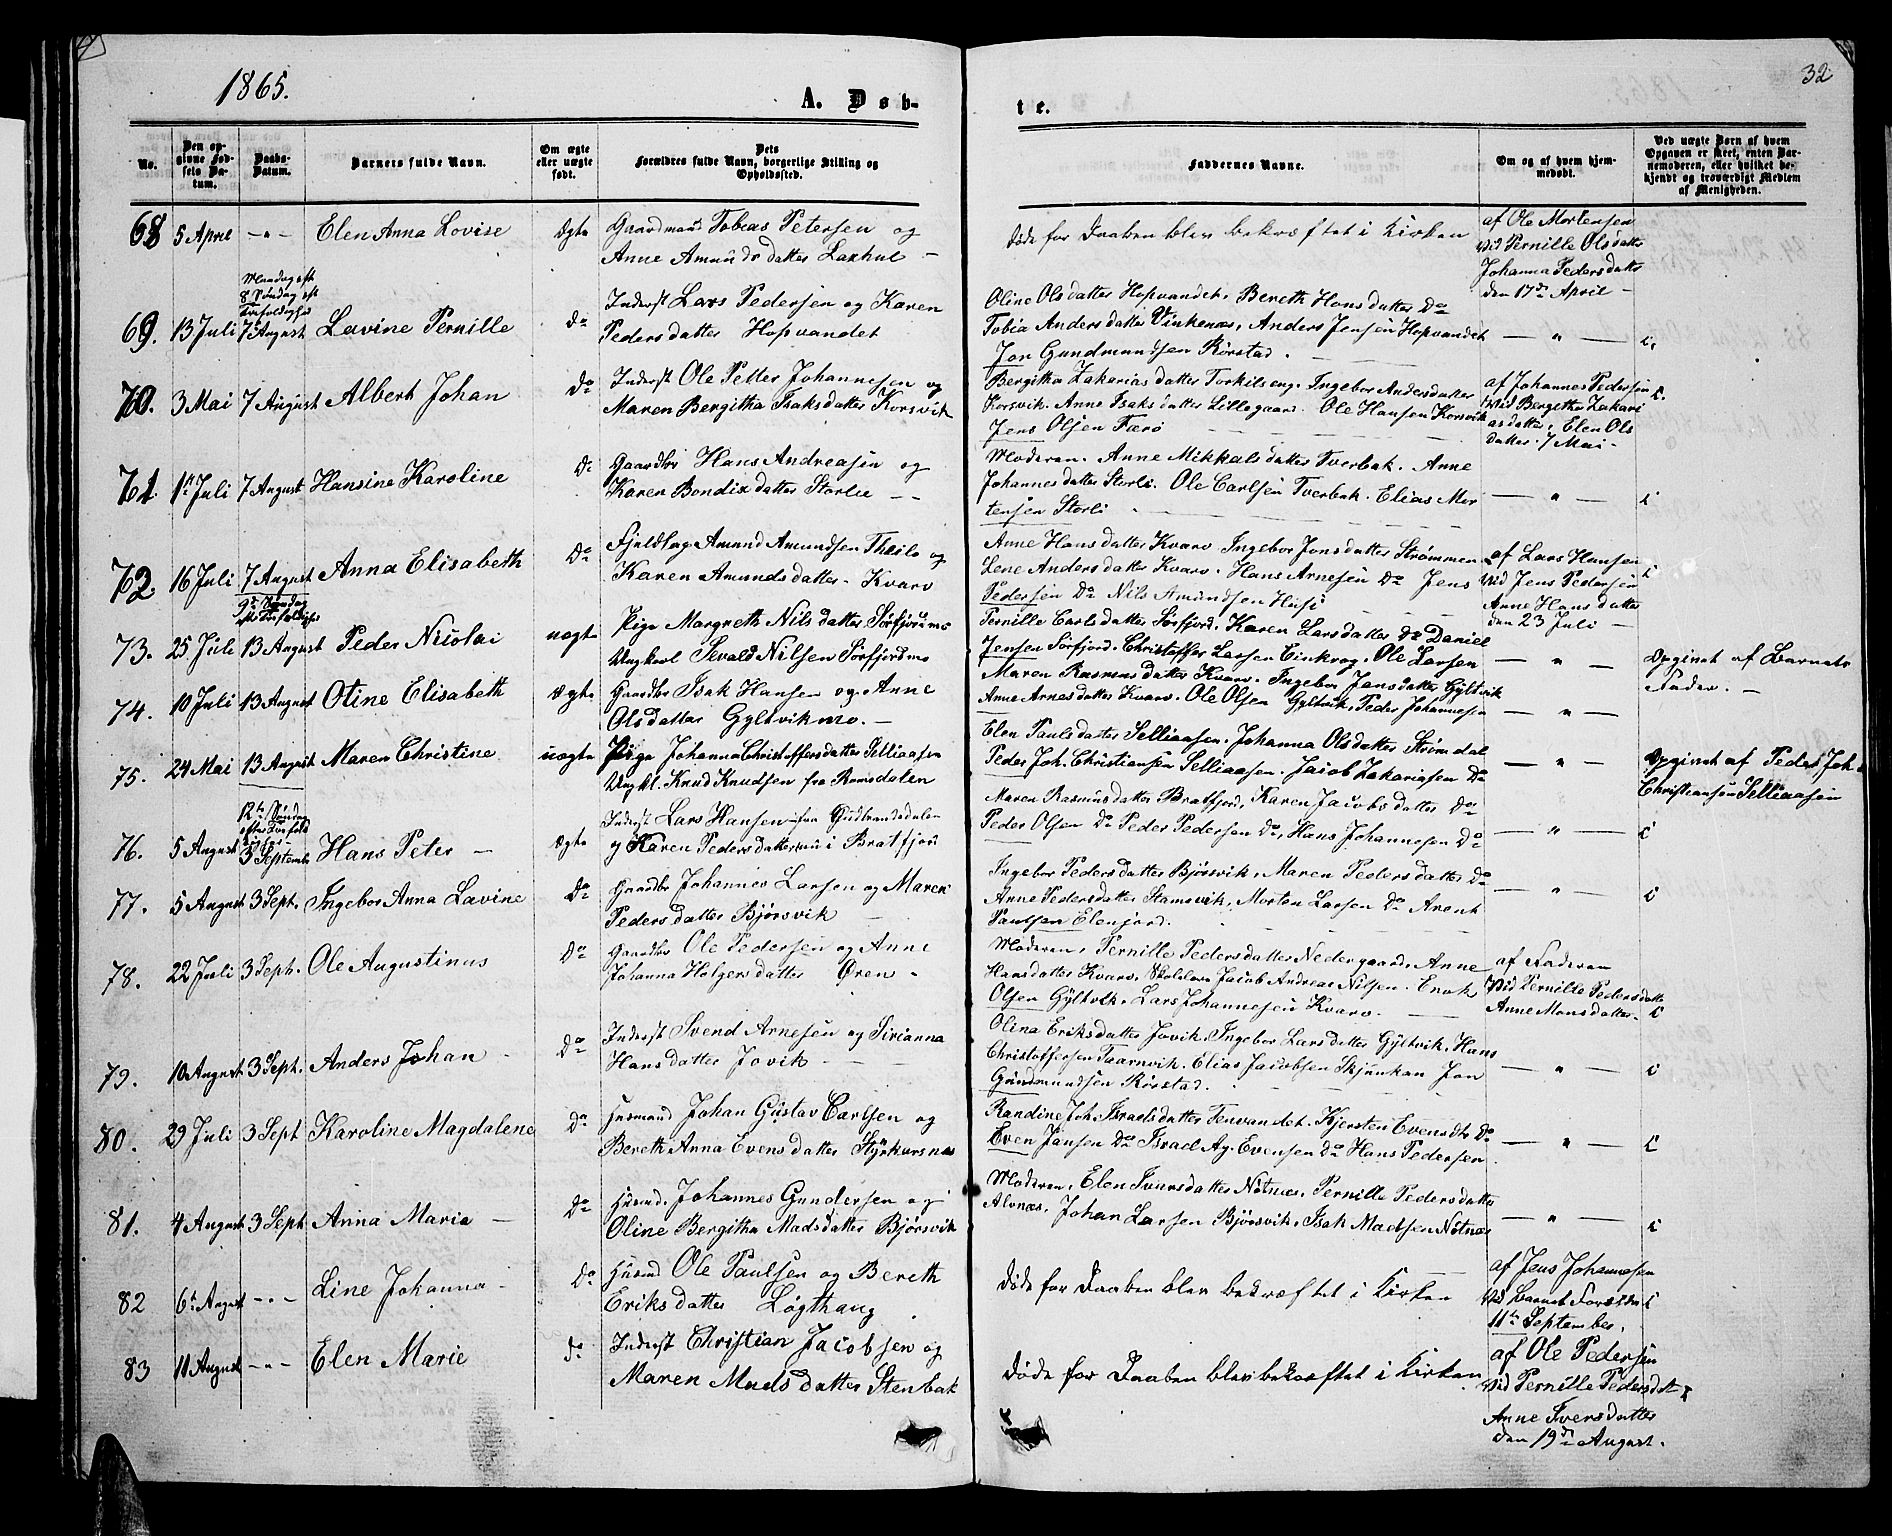 1865.
32
A. Døb-
te.
No.
Den op-
givne Fød-
sels Da-
tum.
Daabs-
Datum.
Barnets fulde Navn.
Om ægte
eller uægte
født.
Dets
Forældres fulde Navn, borgerlige Stilling og
Opholdssted.
Faddernes Navne.
Om og af hvem hjem-
medøbt.
Ved uægte Barn af hvem
Opgaven er skeet, enten Bar-
nemoderen, eller hvilket be-
kjendt og troværdigt Medlem
af Menigheden.
68 5 April — " — Elen Anna Lovise Ægte Gaardmand Tobias Petersen og
Anne Amunds datter Laxhul —
Døde før Daaben blev bekræftet i Kirken
af Ole Mortensen
Vid Pernille Olsdatter
Johanna Pedersdatter
den 17de April —
Mandag eft
8 Søndag eft
Trefoldighed
69. 13 Juli 7 August Lavine Pernille Do Inderst Lars Pedersen og Karen
Peders datter Hopvandet
Oline Ols datter Hopvandet, Bereth Hans datter Do
Tobia Anders datter Vinkenæs, Anders Jensen Hopvandet
Jon Gundmundsen Rørstad.
— " — i,
70. 3 Mai 7 August Albert Johan Do Inderst Ole Petter Johannesen og
Maren Bergitha Isaks datter Korsvik
Bergitha Zakarias datter Torkilseng. Ingebor Andersdatter
Korsvik. Anne Isaks datter Lillegaard. Ole Hansen Korsvik
Jens Olsen Færø
af Johannes Pedersen
Vid Bergitha Zakari
asdatter, Elen Ols
datter. 7 Mai —
i.
71. 1ste Juli 7 August Hansine Karoline Do Gaardbr Hans Andreasen og
Karen Bondix datter Storlie — —
Moderen. Anne Mikkals datter Tverbak. Anne
Johannes datter Storli. Ole Carlsen Tverbak. Elias Mor
tensen Storli
— " — i
72. 16 Juli 7 August Anna Elisabeth Do Amund Amundsen Theilo og
Karen Amunds datter — Kvarv
Anne Hans datter Kvarv. Ingebor Jonsdatter Strømmen
Lene Anders datter Kvarv. Hans Arnesen Do Jens
Pedersen Do Nils Amundsen Husi
af Lars Hansen
Vid Jens Pedersen
Anne Hans datter
den 23 Juli —
i
9de Søndag
eft Trefoldighed
73. 25 Juli 13 August Peder Nicolai uægte Pige Margreth Nils datter Sørfjordmo
Ungkarl Sevald Nilsen Sørfjordmo
Pernille Carls datter Sørfjord, Karen Lars datter Do Daniel
Jensen Sørfjord. Christoffer Larsen Einkrog, Ole Larsen
— " —
Opgivet af Barnets
Fader. —
74. 10 Juli 13 August Otine Elisabeth Ægte Gaardbr Isak Hansen og Anne
Olsdatter Gyltvikmo. —
Maren Rasmus datter Kvarv. Ingebor Jensdatter Gyltvik
Anne Arnes datter Kvarv. Ole Olsen Gyltvik, Peder Johannesen
— " —
75. 24 Mai 13 August Maren Christine uægte Pige Johanna Christoffersdatter Selliaasen
Ungkl. Knud Knudsen fra Romsdalen
Elen Pauls datter Selliaasen. Johanna Olsdatter Strømdal
Peder Joh. Christiansen Selliaasen. Jacob Zakariasen Do
— " —
Opgivet af Peder Joh
Christiansen Selliaasen
12te Søndag
efter Trefold
76. 5 August 3 September Hans Peter — Ægte Inderst Lars Hansen fra Gudbrandsdalen
og Karen Peders datter nu i Bratfjord
Maren Rasmus datter Bratfjord, Karen Jacobs datter Do
Peder Olsen Do Peder Pedersen Do, Hans Johannesen Do
— " — i
77. 5 August 3 Sept. Ingebor Anna Lavine Do Gaardbr Johannes Larsen og Maren
Peders datter Bjørsvik
Ingebor Peders datter Bjørsvik, Maren Peders datter Do
Anne Peders datter Stamsvik, Morten Larsen Do Arent
Paulsen Elenjord.
— " — i
78. 22 Juli 3 Sept. Ole Augustinus Do Gaardbr Ole Pedersen og Anne
Johanna Holgers datter Øren —
Moderen, Pernille Peders datter Nedergaard, Anne
Hansdatter Kvarv, Jacob Andreas Nilsen. Enok
Olsen Gyltvik. Lars Johannesen Kvarv. —
af Faderen
Vid Pernille Pedersdatter
Anne Mons datter. i
79. 10 August 3 Sept. Anders Johan — Do Inderst Svend Arnesen og Sirianna
Hans datter Jovik —
Olina Eriks datter Jovik, Ingebor Lars datter Gyltvik, Hans
Christoffersen Taarnvik. Elias Jacobsen Skjunkan Jon
Gundmundsen Rørstad.
— " — i
80. 29 Juli 3 Sept Karoline Magdalene Do Husmand Johan Gustav Carlsen og
Bereth Anna Evens datter Styrkursnæs
Randine Joh. Israels datter Tenvandet. Kjersten Evensdtr Do
Even Jansen Do Israel Ag. Evensen Do Hans Pedersen
— " — i
81. 4 August 3 Sept Anna Maria — Do Husmd. Johannes Gundersen og
Oline Bergitha Mads datter Bjørsvik
Moderen, Elen Ivarsdatter Nøtnæs, Pernille Pedersdatter
Alvnæs, Johan Larsen Bjørsvik, Isak Madsen Nøtnæs
— " — i
82 6te August — " — Line Johanna — Do Husmd Ole Paulsen og Bereth
Eriks datter Løgthaug
Døde før Daaben blev bekræftet i Kirken
af Jens Johannesen
Vid Barnets Forældre
11te September.
i
83 11 August — " — Elen Marie do Inderst Christian Jacobsen og
Maren Mads datter Stenbak
Døde før Daaben blev bekræftet i Kirken
af Ole Pedersen
Vid Pernille Pedersdat
Anne Ivers datter
den 19de August.
i